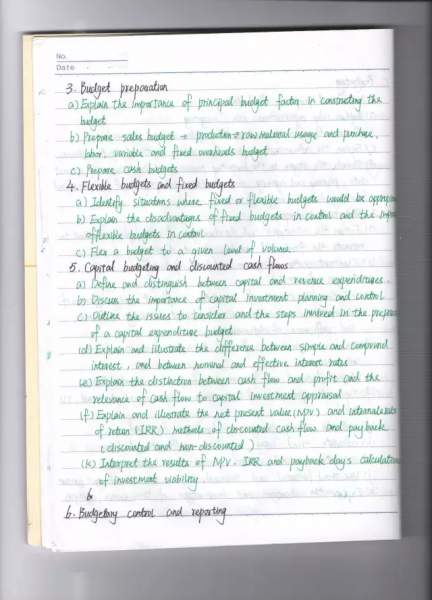 No.
Date
3. Budget preparation
a) Explain the importance of principal budget factor in constructing the
budget
b) Prepare sales budget → production → raw material usage and purchase,
labor, variable and fixed overheads budget
c) Prepare cash budgets
4. Flexible budgets and fixed budgets
a) Identify situations where fixed or flexible budgets would be
b) Explain the disadvantages of fixed budgets in control and the
of flexible budgets in control
c) Flex a budget to a given level of volume
5. Capital budgeting and discounted cash flows
a) Define and distinguish between capital and revenue expenditures.
b) Discuss the importance of capital investment planning and control
c) Outline the issues to consider and the steps involved in the
of a capital expenditure budget
(d) Explain and illustrate the difference between simple and compound
interest, and between nominal and effective interest rates
(e) Explain the distinction between cash flow and profit and the
relevance of cash flow to capital investment appraisal
(f) Explain and illustrate the net present value (NPV) and internal
of return (IRR) methods of discounted cash flow and payback
(discounted and non-discounted)
(k) Interpret the results of NPV. IRR and payback days
of investment viability
6
6. Budgetary control and reporting